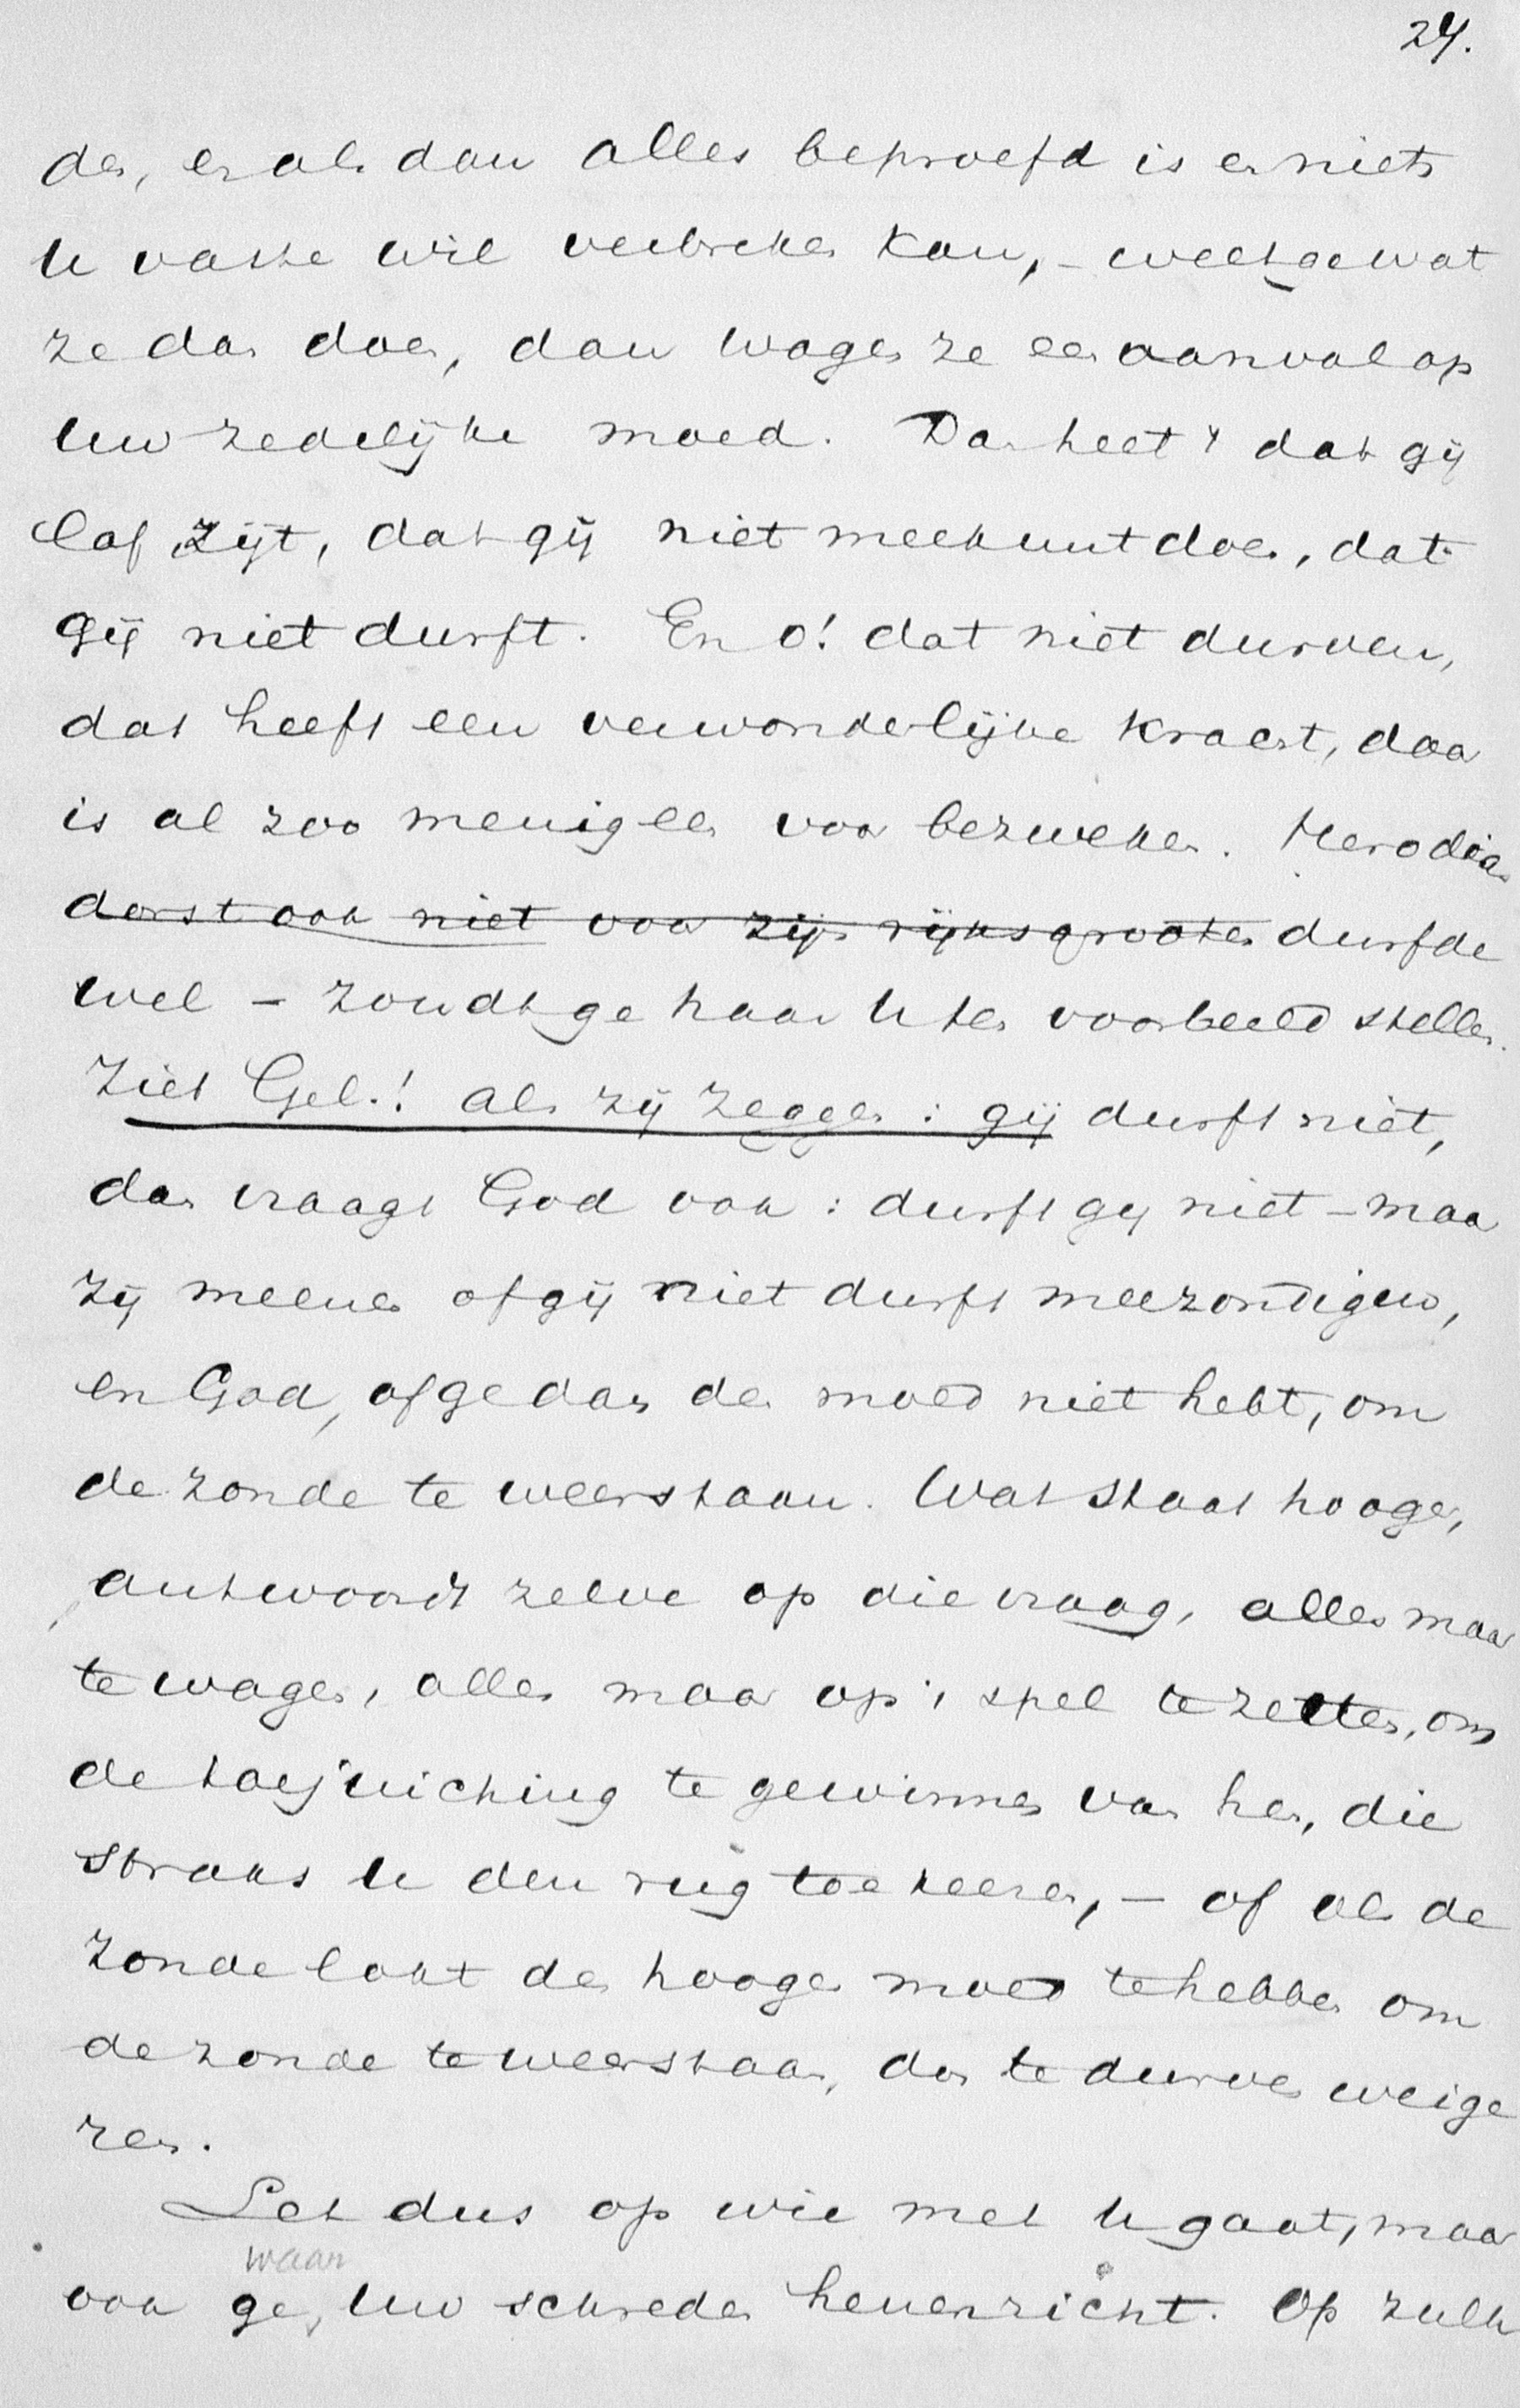 24.
den, en als dan alles beproefd is en niets
U vaste wil verbreken kan, – weet ge wat
ze dan doen, dan wagen ze een aanval op
Uw zedelijke moed. Dan heet 't dat gij
laf zijt, dat gij niet meekunt doen, dat
gij niet durft. En o! dat niet durven,
dat heeft een verwonderlijke kracht, daar
is al zoo menigeen voor bezweken. Herodias
dorst ook niet voor zijn rijksgrooten durfde
wel – zoudt ge haar U ten voorbeeld stellen.
Ziet Gel.! als zij zeggen: gij durft niet,
dan vraagt God ook: durft gij niet – maar
zij meenen of gij niet durft meezondigen,
en God, of ge dan den moed niet hebt, om
de zonde te weerstaan. Wat staat hooger,
antwoordt zelve op die vraag, alles maar
te wagen, alles maar op 't spel te zetten, om
de toejuiching te gewinnen van hen, die
straks U den rug toekeeren, – of als de
zonde lokt den hoogen moed te hebben om
de zonde te weerstaan, dan te durven weige
ren.
Let dus op wie met U gaat, maar
waar
ook ge, Uw schreden henenricht. Op zulk